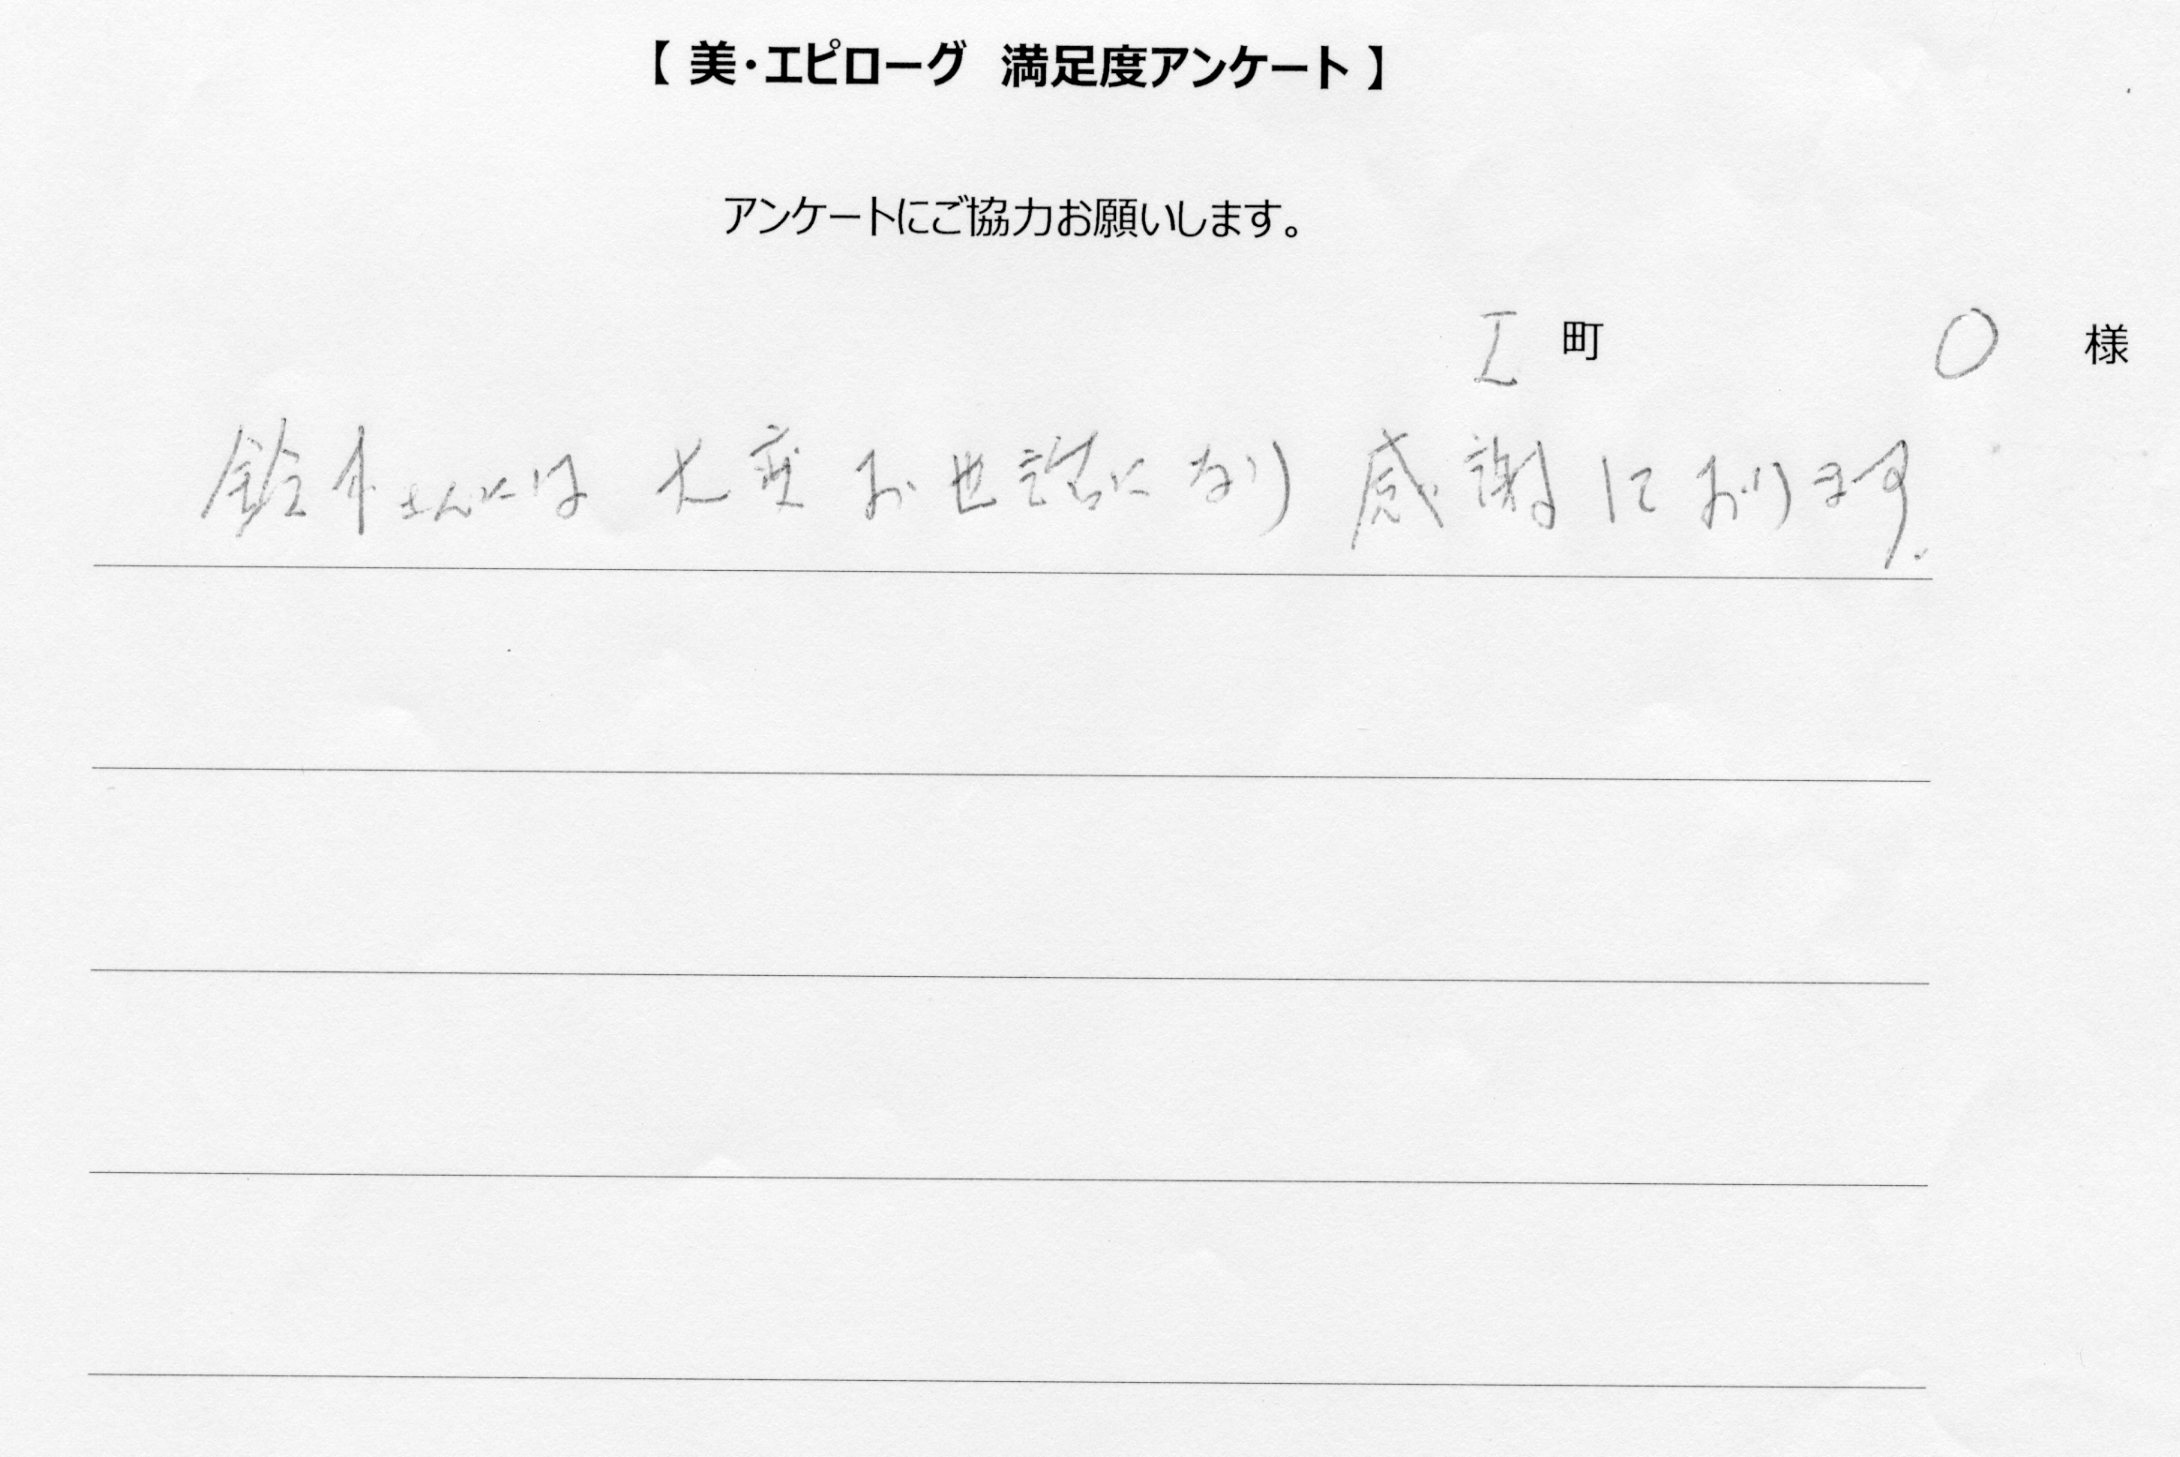 【 美・エピローグ 満足度アンケート 】
アンケートにご協力お願いします。
I 町 O 様
鈴木さんには 大変 お世話になり 感謝にております。